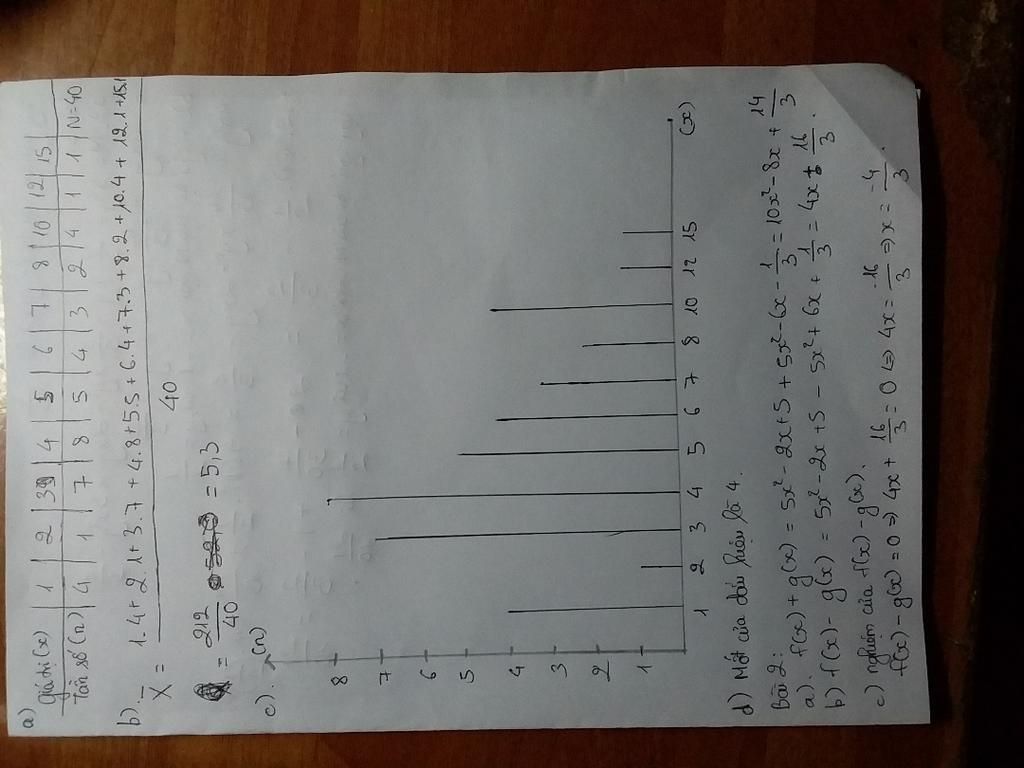 a)
giá trị (x) | 1 | 2 | 3 | 4 | 5 | 6 | 7 | 8 | 10 | 12 | 15 |
Tần số (n) | 4 | 1 | 7 | 8 | 5 | 4 | 3 | 2 | 4 | 1 | 1 | N=40
b). X̄ = 1.4+2.1+3.7+4.8+5.5+6.4+7.3+8.2+10.4+12.1+15.1
40
= 212/40 = 5,3
c).
(n)
8
7
6
5
4
3
2
1
1 2 3 4 5 6 7 8 10 12 15 (x)
d) Mốt của dấu hiệu là 4.
Bài 2:
a). f(x) + g(x) = 5x² - 2x + 5 + 5x² - 6x - 1/3 = 10x² - 8x + 14/3
b) f(x) - g(x) = 5x² - 2x + 5 - 5x² + 6x + 1/3 = 4x + 16/3.
c) nghiệm của f(x) - g(x).
f(x) - g(x) = 0 ⇒ 4x + 16/3 = 0 ⇔ 4x = -16/3 ⇒ x = -4/3.